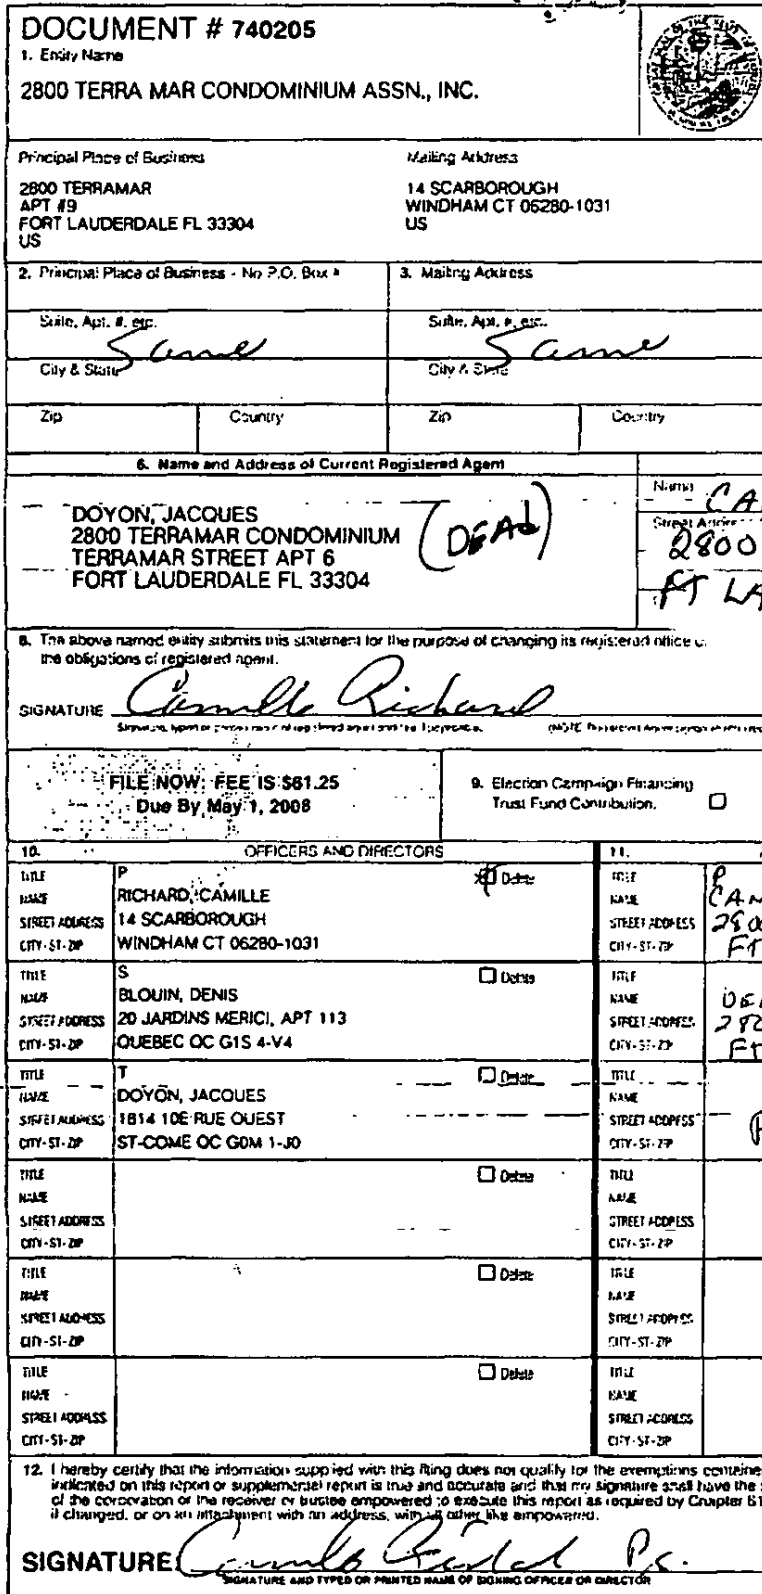 DOCUMENT # 740205
1. Entity Name
2800 TERRA MAR CONDOMINIUM ASSN., INC.
Principal Place of Business
2800 TERRAMAR
APT #9
FORT LAUDERDALE FL 33304
US
Mailing Address
14 SCARBOROUGH
WINDHAM CT 06280-1031
US
2. Principal Place of Business - No P.O. Box #
3. Mailing Address
Suite, Apt. #, etc.
Same
Suite, Apt. #, etc.
Same
City & State
City & State
Zip
Country
Zip
Country
6. Name and Address of Current Registered Agent
DOYON, JACQUES
2800 TERRAMAR CONDOMINIUM
TERRAMAR STREET APT 6
FORT LAUDERDALE FL 33304
(DEAD)
Name
CA
Street Address
2800
FT LA
8. The above named entity submits this statement for the purpose of changing its registered office o
the obligations of registered agent.
SIGNATURE Camille Richard
Signature, typed or printed name of registered agent and title if applicable.
(NOTE: Registered Agent
FILE NOW: FEE IS $61.25
Due By May 1, 2008
9. Election Campaign Financing
Trust Fund Contribution.
10. OFFICERS AND DIRECTORS
11.
TITLE P Delete
NAME RICHARD, CAMILLE
STREET ADDRESS 14 SCARBOROUGH
CITY-ST-ZIP WINDHAM CT 06280-1031
TITLE P
NAME CAM
STREET ADDRESS 280
CITY-ST-ZIP FT
TITLE S Delete
NAME BLOUIN, DENIS
STREET ADDRESS 20 JARDINS MERICI, APT 113
CITY-ST-ZIP QUEBEC QC G1S 4-V4
TITLE
NAME DE
STREET ADDRESS 280
CITY-ST-ZIP FT
TITLE T Delete
NAME DOYON, JACQUES
STREET ADDRESS 1814 10E RUE OUEST
CITY-ST-ZIP ST-COME QC G0M 1-J0
TITLE
NAME
STREET ADDRESS
CITY-ST-ZIP
TITLE Delete
NAME
STREET ADDRESS
CITY-ST-ZIP
TITLE
NAME
STREET ADDRESS
CITY-ST-ZIP
TITLE Delete
NAME
STREET ADDRESS
CITY-ST-ZIP
TITLE
NAME
STREET ADDRESS
CITY-ST-ZIP
TITLE Delete
NAME
STREET ADDRESS
CITY-ST-ZIP
TITLE
NAME
STREET ADDRESS
CITY-ST-ZIP
12. I hereby certify that the information supplied with this filing does not qualify for the exemptions containe
indicated on this report or supplemental report is true and accurate and that my signature shall have the
of the corporation or the receiver or trustee empowered to execute this report as required by Chapter 61
if changed, or on an attachment with an address, with all other like empowered.
SIGNATURE Camille Richard
SIGNATURE AND TYPED OR PRINTED NAME OF SIGNING OFFICER OR DIRECTOR